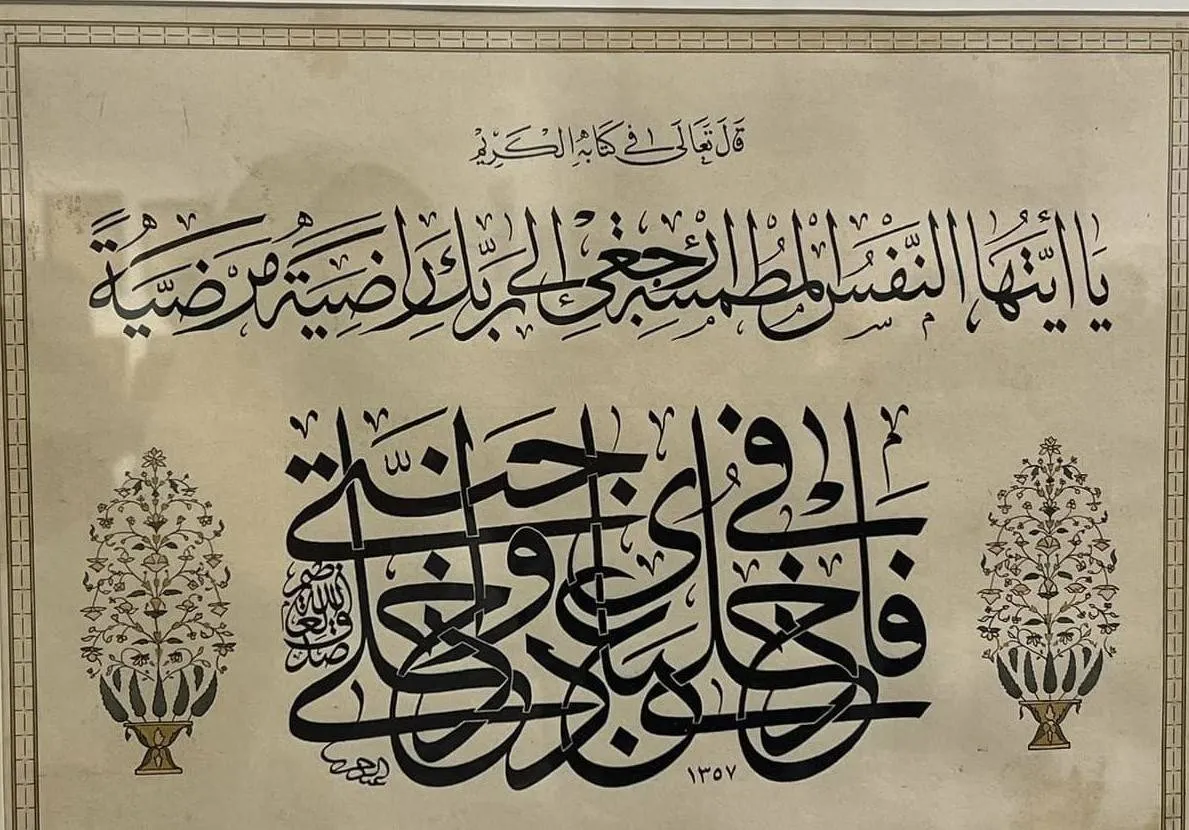 قَالَ تَعَالَى فِي كِتَابِهِ الْكَرِيْمِ
يَا اَيَّتُهَا النَّفْسُ الْمُطْمَئِنَّةُ ارْجِعِي اِلَى رَبِّكِ رَاضِيَةً مَرْضِيَّةً
فَادْخُلِي فِي عِبَادِي وَادْخُلِي جَنَّتِي
صدق الله العظيم
١٣٥٧